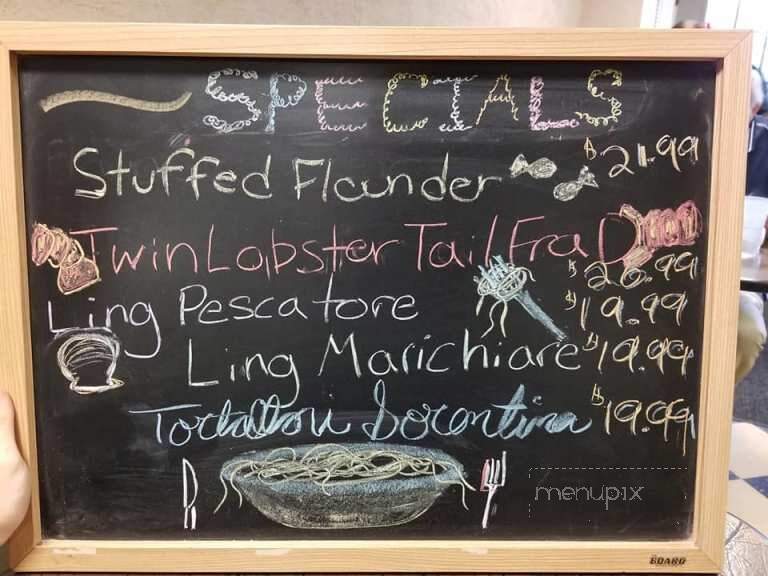 SPECIALS
Stuffed Flounder $21.99
Twin Lobster Tail Fra D
$26.99
Ling Pescatore $19.99
Ling Marichiare $19.99
Tortelloni Sorentina $19.99
menupix
BOARD